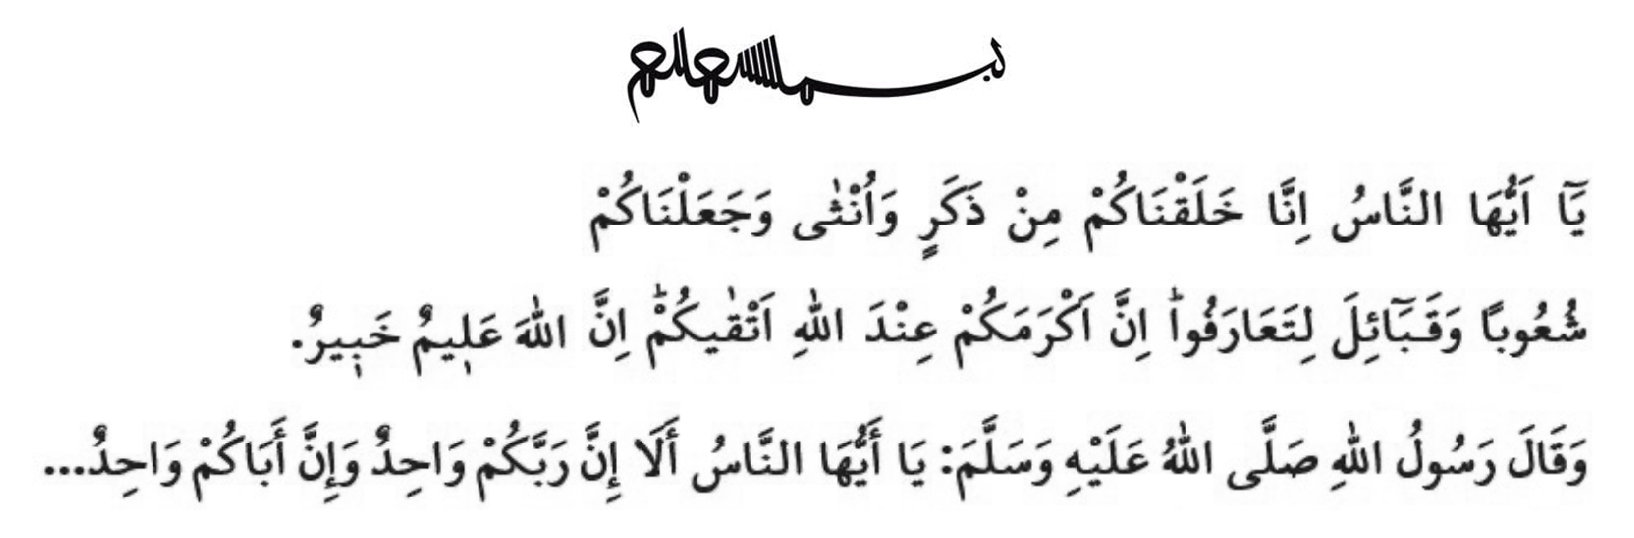 بسم الله الرحمن الرحيم
يَٓا اَيُّهَا النَّاسُ اِنَّا خَلَقْنَاكُمْ مِنْ ذَكَرٍ وَاُنْثٰى وَجَعَلْنَاكُمْ
شُعُوبًا وَقَبَٓائِلَ لِتَعَارَفُواۜ اِنَّ اَكْرَمَكُمْ عِنْدَ اللّٰهِ اَتْقٰيكُمْۜ اِنَّ اللّٰهَ عَلٖيمٌ خَبٖيرٌ.
وَقَالَ رَسُولُ اللّٰهِ صَلَّى اللّٰهُ عَلَيْهِ وَسَلَّمَ: يَا أَيُّهَا النَّاسُ أَلَا إِنَّ رَبَّكُمْ وَاحِدٌ وَإِنَّ أَبَاكُمْ وَاحِدٌ...